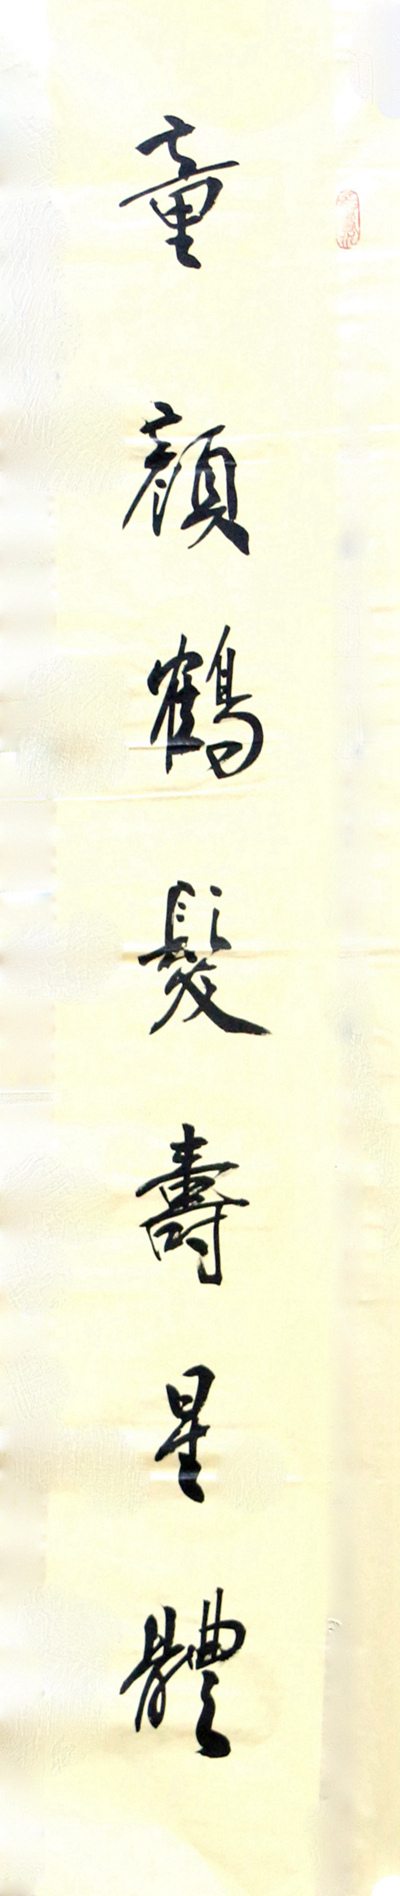 童顔鶴髮壽星體